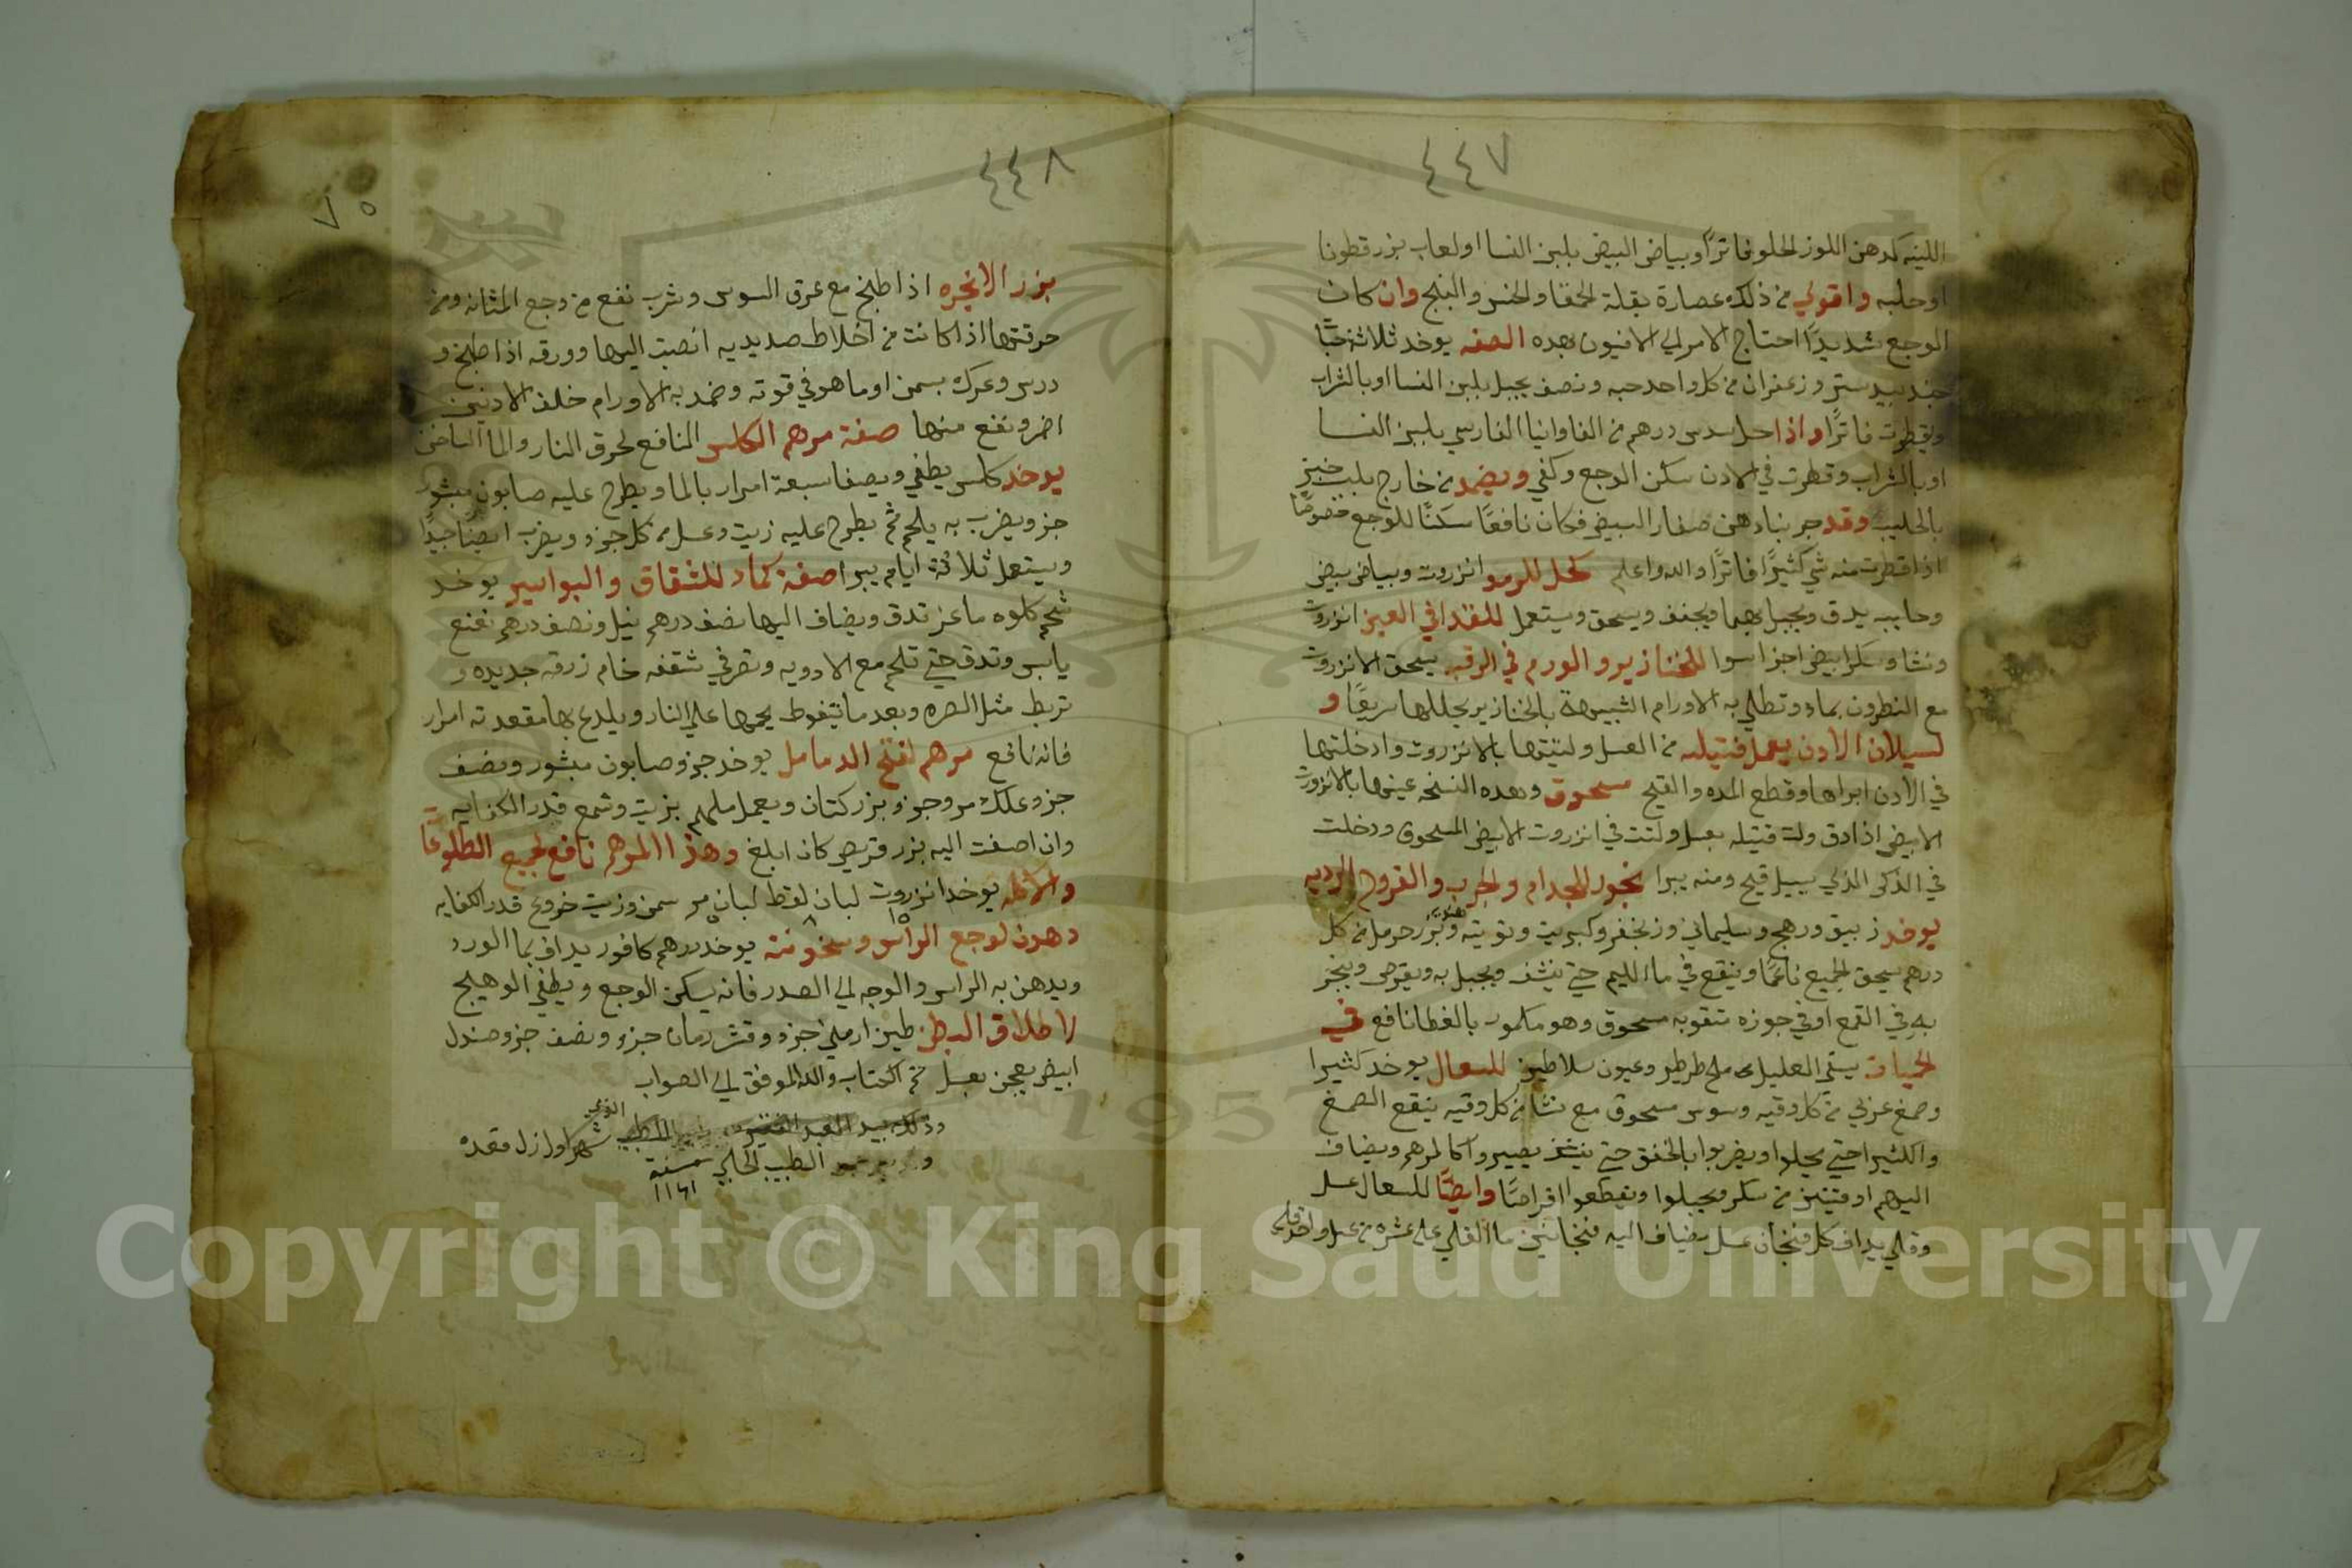 ٤٤٧
اللينه كدهن اللوز الحلو فاترًا وبياض البيض بلبن النسا او لعاب بزر قطونا
او حلبه واقوي من ذلك عصارة بقلة الحمقا والخس والبنج وان كان
الوجع شديدًا احتاج الامر الي الافيون بهده الصفه يوخد ثلاثة حبًا
جندبيدستر وزعفران من كل واحد حبه ونصف يجبل بلبن النسا او بالشراب
ويقطر فاترًا واذا حل سدس درهم من الفاوانيا الفارسي بلبن النسا
او بالشراب وقطرت في الادن سكن الوجع وكفي ويضمد من خارج بلب خبز
بالحليب وقد جربنا دهن صفار البيض فكان نافعًا سكنًا للوجع خصوصًا
اذا قطرت منه شي كثيرًا فاترًا والله اعلم كحل للرمد انزروت وبياض بيض
وحليب يدق ويجبل بهما ويجفف ويسحق ويستعمل للقدا في العين انزروت
ونشا وسكر ابيض اجزا سوا للخنازير والورم في الرقبه يسحق الانزروت
مع النطرون بماء وتطلي به الاورام الشبيهة بالخنازير يحللها سريعًا و
لسيلان الادن يعمل فتيله من العسل ولتيتها بالانزروت وادخلتها
في الادن ابراها وقطع المده والقيح مسحوق وهده النسخه عينها بالانزروت
الابيض اذا دق ولت فتيله بعسل ولتت في انزروت الابيض المسحوق ودخلت
في الذكر الذي يسيل قيح ومنه يبرا بخور للجدام والجرب والقروح الرديه
يوخد زيبق ورهج وسليماني وزنجفر وكبريت وتوتيه هنديه وبزر حرمل من كل
درهم يسحق الجميع ناعمًا وينقع في ماء الليم حتي ينشف ويجبل به ويقرص ويبخر
به في القمع او في جوزه متقوبه مسحوق وهو مكمور بالغطا نافع في
الحميات يسقي العليل ملح طرطير وعيون سلاطين للسعال يوخد كثيرا
وصمغ عربي من كل وقيه وسوس مسحوق مع نشا من كل وقيه ينقع الصمغ
والكثيرا حتي يحلوا ويضربوا بالخفق حتي ينشف يصيروا كالمرهم ويضاف
اليهم اوقيتين من سكر ويجبلوا ويقطعوا اقراصًا وايضًا للسعال عسل
وقلي يداف كل فنجان عسل يضاف اليه فنجانين ما القلي علي عشره من عسل واحد قلي
٤٤٨
٧٥
بزر الانجره اذا طبخ مع عرق السوس وشرب نفع من وجع المثانه ومن
حرقتها اذا كانت من اخلاط صديديه انصبت اليها وورقه اذا طبخ و
درس وعرك بسمن او ما هو في قوته وضمد به الاورام خلف الادنين
اضر ونفع منها صفة مرهم الكلس النافع لحرق النار والما الساخن
يوخد كلس يطفي ويصفا سبعة امرار بالما ويطرح عليه صابون مبشور
جز ويضرب به يلحم ثم يطرح عليه زيت وعسل من كل جزو ويضرب ايضًا جيدًا
ويستعمل ثلاثة ايام يبرا صفة كماد للشقاق والبواسير يوخد
شحم كلوه ماعز تدق ويضاف اليها نصف درهم نيل ونصف درهم نعنع
يابس وتدق حتي تلحم مع الادويه وتصر في شقفه خام زرقه جديده و
تربط مثل الصره وبعد ما يتغوط يحمها علي النار ويلدع بها مقعدته امرار
فانه نافع مرهم لفتح الدمامل يوخد جزو صابون مبشور ونصف
جزو علك مر وجزو بزر كتان ويعمل ملهم بزيت وشمع قدر الكفايه
وان اضفت اليه بزر قريص كان ابلغ وهذا المرهم نافع لجميع الطلوعات
والاكله يوخد انزروت ١٥ لبان لقط ٨ لبان مر ٥ سمن وزيت خروع قدر الكفايه
دهون لوجع الراس وسخونته يوخد درهم كافور يداف بما الورد
ويدهن به الراس والوجه الي الصدر فانه يسكن الوجع ويطفي الوهيج
لاطلاق البطن طين ارمني جزو وقشر رمان جزو ونصف جزو صندل
ابيض يعجن بعسل تم الكتاب والله الموفق الي الصواب
وذلك بيد العبد الفقير المتطبب الذي شهر اول زل مقعده
الطبيب الحلبي سنة
Copyright © King Saud University
1957